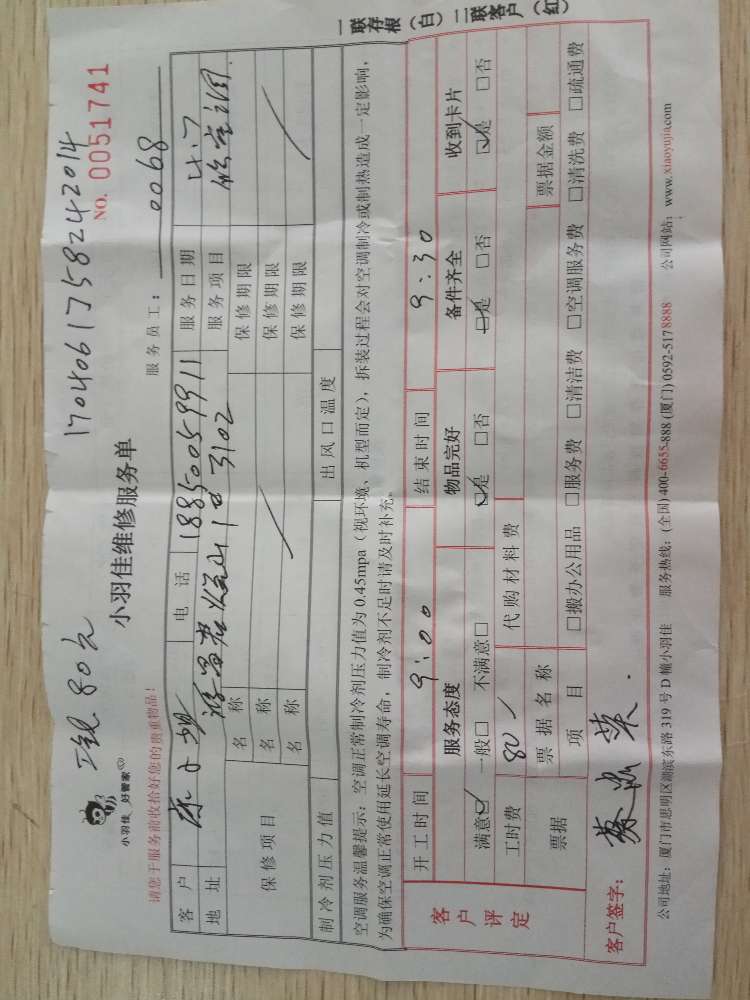 1704061758242014
工银 80元
小羽佳 好管家
小羽佳维修服务单
NO. 0051741
请您于服务前收拾好您的贵重物品!
服务员工: 0068
客户 电话 18850059911 服务日期 4.7
地址 1 3102 服务项目
保修项目 名称 保修期限
名称 保修期限
名称 保修期限
制冷剂压力值 出风口温度
空调服务温馨提示:空调正常制冷剂压力值为 0.45mpa(视环境、机型而定),拆装过程会对空调制冷或制热造成一定影响,
为确保空调正常使用延长空调寿命,制冷剂不足时请及时补充。
一联存根(白)二联客户(红)
客户评定
开工时间 9:00 结束时间 9:30
服务态度 物品完好 备件齐全 收到卡片
满意☑ 一般□ 不满意□ ☑是 □否 ☑是 □否 ☑是 □否
工时费 80 代购材料费
票据 票据名称 票据金额
项目 □搬办公用品 □服务费 □清洁费 □空调服务费 □清洗费 □疏通费
客户签字:
公司地址:厦门市思明区湖滨东路 319 号 D 幢小羽佳 服务热线:(全国) 400-6655-888 (厦门) 0592-5178888 公司网站:www.xiaoyujia.com